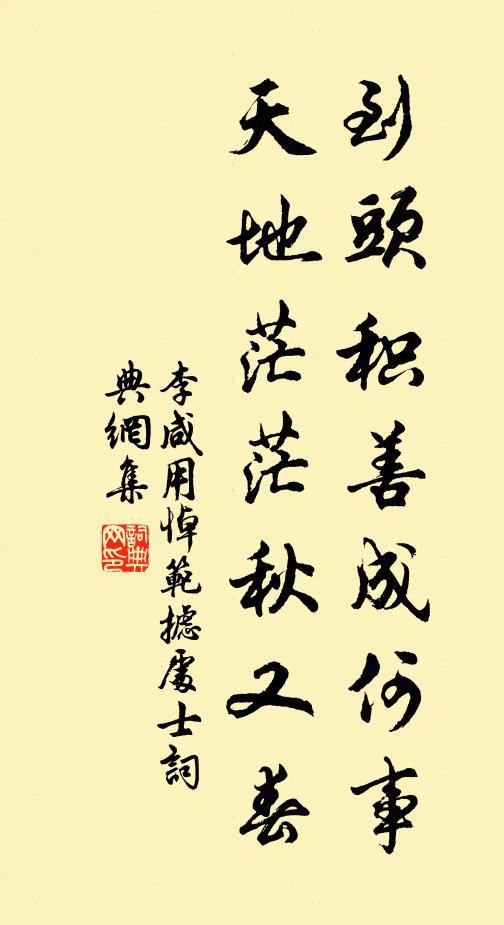 到頭积善成何事
天地茫茫秋又春
李咸用悼範攄處士詞
典網集
詞典網印